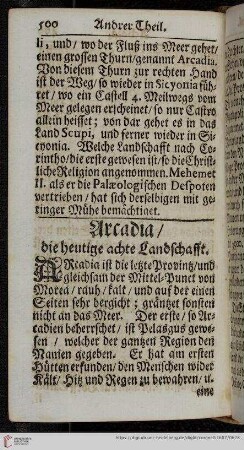 500 Andrer Theil.
li, und/ wo der Fluß ins Meer gehet/
einen grossen Thurn/genannt Arcadia.
Von diesem Thurn zur rechten Hand
ist der Weg/ so wieder in Sicyonia füh-
ret/ wo ein Castell 4. Meilwegs vom
Meer gelegen erscheinet/ so nur Castro
allein heisset; von dar gehet es in das
Land Scupi, und ferner wieder in Si-
cyonia. Welche Landschafft nach Co-
rintho/die erste gewesen ist/ so die Christ-
liche Religion angenommen. Mehemet
II. als er die Palæologischen Despoten
vertrieben/ hat sich derselbigen mit ge-
ringer Mühe bemächtiget.
Arcadia/
die heutige achte Landschafft.
ARcadia ist die letzte Provintz/und
gleichsam der Mittel-Punct von
Morea/ rauh/ kalt/ und auf der einen
Seiten sehr bergicht; gräntzet sonsten
nicht an das Meer. Der erste/ so Ar-
cadien beherrschet/ ist Pelasgus gewe-
sen/ welcher der gantzen Region den
Namen gegeben. Er hat am ersten
Hütten erfunden/ den Menschen wider
Kält/ Hitz und Regen zu bewahren/ u.
eine